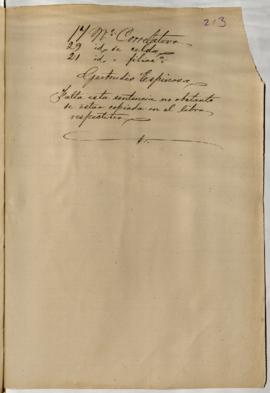 213
17 Nº Correlativo
29 id. de celda
21 id. " filiacn
Gertrudis Espinosa
Falta esta sentencia no obstante
de estar copiada en el libro
respectivo